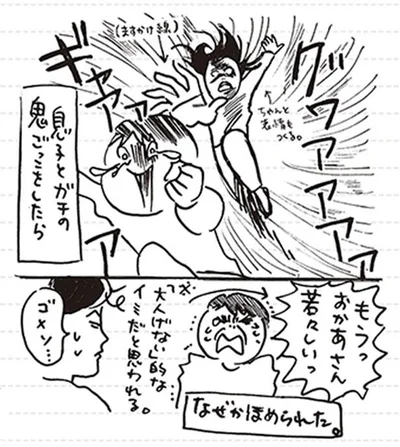 グワアアアアァ
(ますかけ線)
ちゃんと
表情も
つくる。
ギャアアァァ
息子とガチの
鬼ごっこをしたら
もうっ
おかあさん
若々しいっ
なぜかほめられた。
※"大人げない"的な
イミだと思われる。
ゴメン…